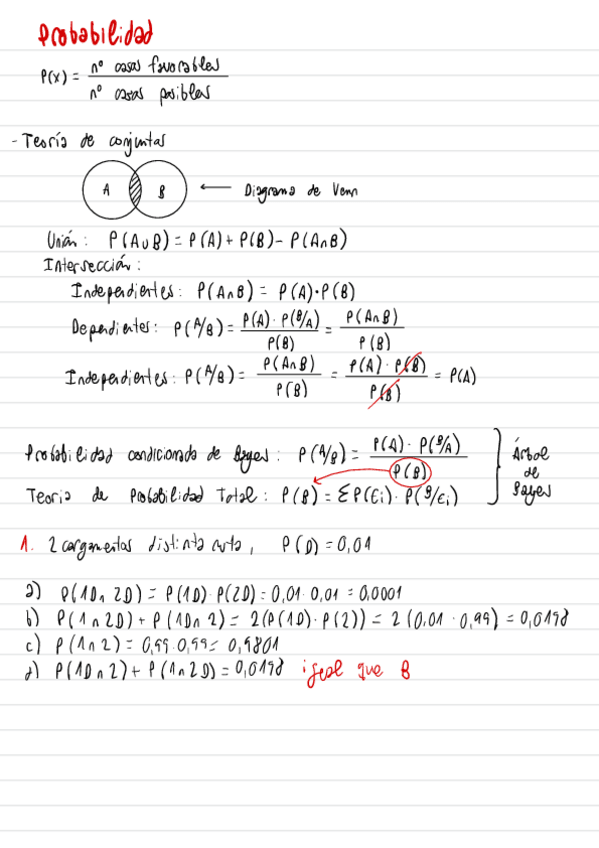 Probabilidad
P(x) = nº casos favorables / nº casos posibles
- Teoría de conjuntos
A B ← Diagrama de Venn
Unión: P(A∪B) = P(A) + P(B) - P(A∩B)
Intersección:
Independientes: P(A∩B) = P(A)·P(B)
Dependientes: P(A/B) = P(A)·P(B/A) / P(B) = P(A∩B) / P(B)
Independientes: P(A/B) = P(A∩B) / P(B) = P(A)·P(B) / P(B) = P(A)
Probabilidad condicionada de Bayes: P(A/B) = P(A)·P(B/A) / P(B)
Teoria de Probabilidad Total: P(B) = ΣP(Ei)·P(B/Ei)
Árbol
de
Bayes
1. 2 cargamentos distinta ruta, P(D) = 0,01
a) P(1D∩2D) = P(1D)·P(2D) = 0,01·0,01 = 0,0001
b) P(1∩2D) + P(1D∩2) = 2(P(1D)·P(2)) = 2(0,01·0,99) = 0,0198
c) P(1∩2) = 0,99·0,99 = 0,9801
d) P(1D∩2) + P(1∩2D) = 0,0198 igual que B